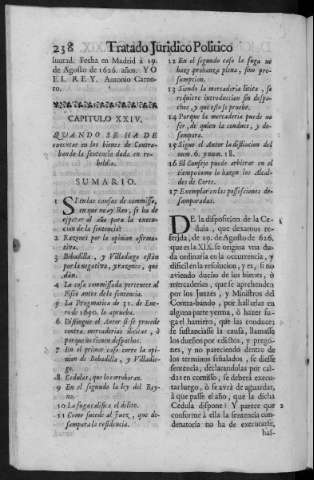 238 Tratado Juridico Politico
luntad. Fecha en Madrid à 19.
de Agosto de 1626. años. YO
EL REY. Antonio Carne-
ro.
CAPITULO XXIV.
QUANDO SE HA DE
executar en los bienes de Contra-
bando la sentencia dada en re-
beldia.
SUMARIO.
1 SI en las causas de commisso,
en que no ay Reo, si ha de
esperar al año para la execu-
cion de la sentencia?
2 Razones por la opinion afirma-
tiva.
3 Bobadilla, y Villadiego estàn
por la negativa, y razones, que
dàn.
4 La cosa commissada pertenece al
Fisco antes de la sentencia.
5 La Pragmatica de 31. de Ene-
ro de 1690. lo aprueba.
6 Distingue el Autor si se procede
contra mercaderias ilicitas, ò
porque no tienen despachos.
7 En el primer caso corre la opi-
nion de Bobadilla, y Villadie-
go.
8 Cedulas, que los corroboran.
9 En el segundo la ley del Rey-
no.
10 La fuga califica el delito.
11 Como sucede al Juez, que de-
sampara la residencia.
12 En el segundo caso la fuga no
haze probanza plena, sino pre-
sumpcion.
13 Siendo la mercaderia licita, se
requiere introduccion sin despa-
cho, y que esto se pruebe.
14 Porque la mercaderia puede no
ser, de quien la conduce, y de-
sampara.
15 Sigue el Autor la distincion del
num. 6. y num. 18.
16 El Consejo puede arbitrar en el
tiempo como lo hazen los Alcal-
des de Corte.
17 Exemplar en las possessiones de-
samparadas.
DE la disposicion de la Ce-
dula, que dexamos re-
ferida, de 19. de Agosto de 626,
que es la XIX. se origina vna du-
da ordinaria en la occurrencia, y
dificil en la resolucion, y es, si no
aviendo dueño de los bienes, y
mercaderias, que se aprehenden
por los Juezes, y Ministros del
Contra-bando, por hallarlas en
alguna parte yerma, ò hazer fu-
ga el harriero, que las conduce;
se sustanciasse la causa, llamando
los dueños por edictos, y prego-
nes, y no pareciendo dentro de
los terminos señalados, se diesse
sentencia, declarandolas por cai-
das en comisso, se deberà execu-
tar luego, ò se avrà de aguardar,
à que passe el año, que la dicha
Cedula dispone? Y parece que
conforme à ella la sentencia con-
denatoria no ha de executarse,
2
has-